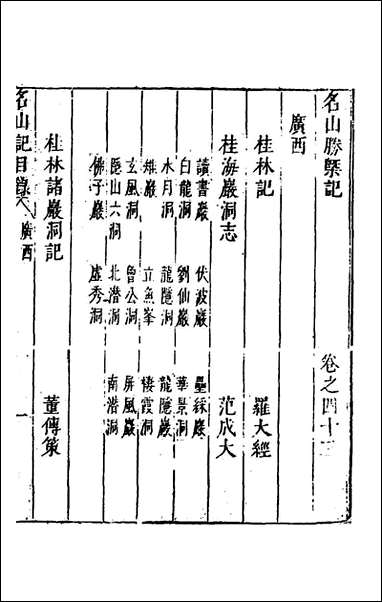 名山勝槩記 卷之四十三
廣西
桂林記 羅大經
桂海巖洞志 范成大
讀書巖 伏波巖 壘綵巖
白龍洞 劉仙巖 華景洞
水月洞 龍隱洞 龍隱巖
雉巖 立魚峯 棲霞洞
玄風洞 曾公洞 屏風巖
隱山六洞 北潛洞 南潛洞
佛子巖 虛秀洞
桂林諸巖洞記 董傳策
名山記目錄 廣西 一